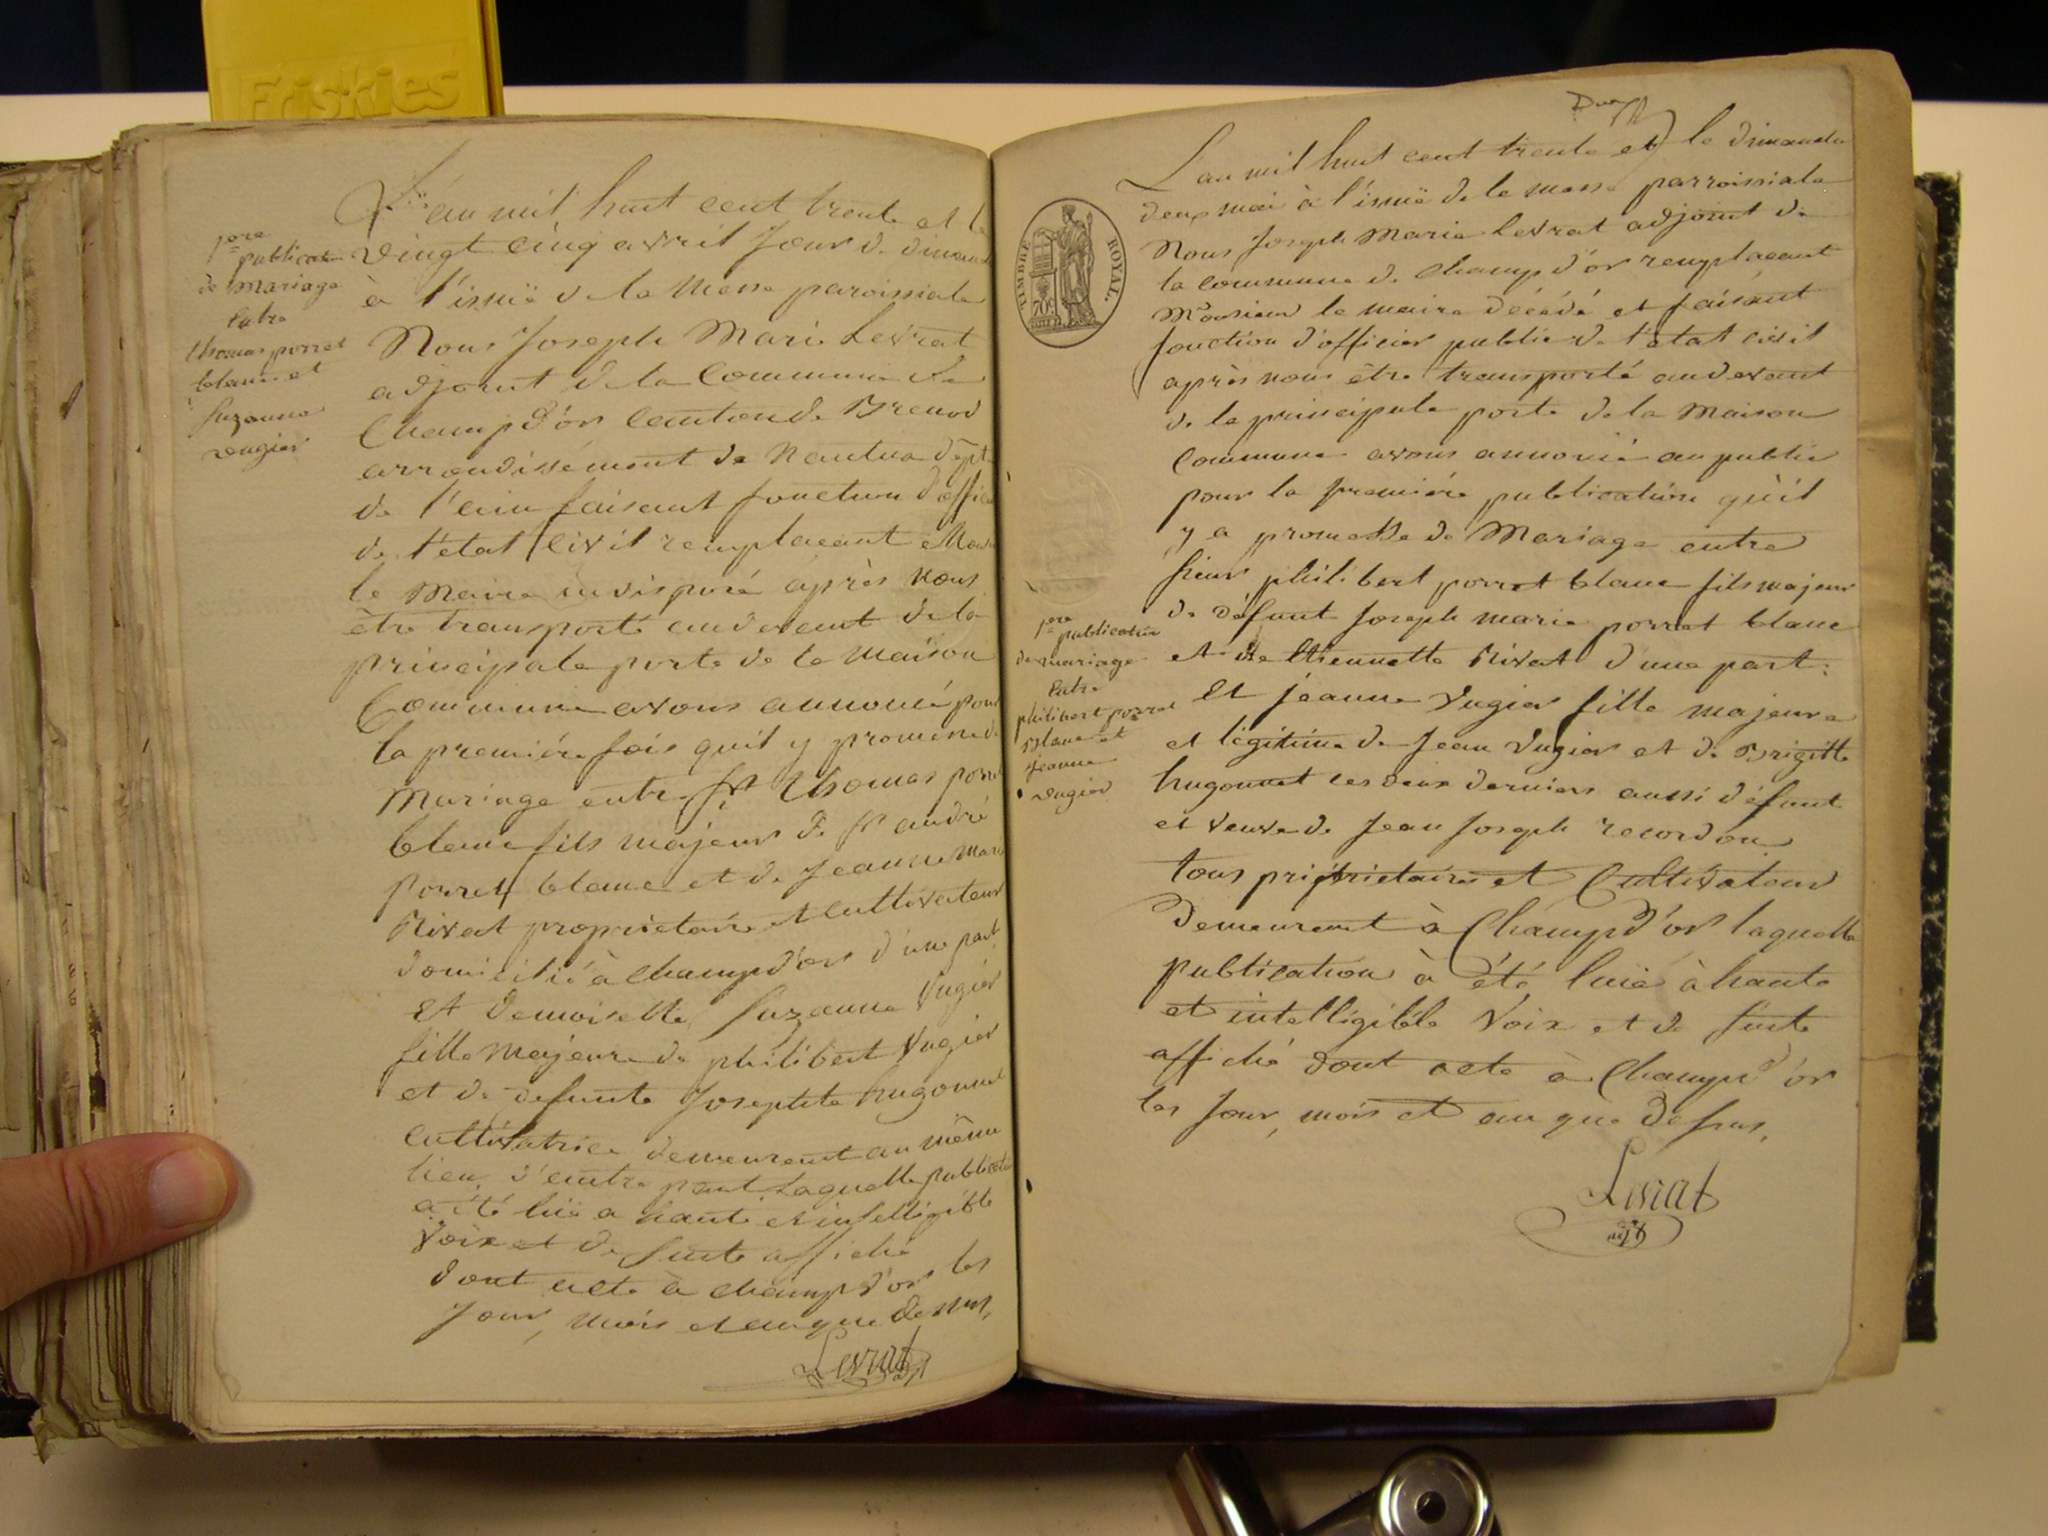 Friskies
1ere
publication
de mariage
Entre
thomas porret
blanc et
Suzanne
vugier
L'an mil huit cent trente et le
vingt cinq avril Jour de diman
à l'issuë de la Messe paroissiale
Nous Joseph Marie Levrat
adjoint de la Commune de
Champd'or Canton de Brenod
arrondissement de Nantua dépt
de l'ain faisant fonction d'offici
de l'état Civil remplacant
le Maire indisposé après nous
être transporté au devant de la
principale porte de la Maison
Commune avons annoncé pour
la première fois quil y promesse de
Mariage entre Sr Thomas porret
blanc fils majeur de Sr andré
Porret blanc et de Jeanne Mari
Nivat propriétaire et cultivateur
domicilié à Champd'or d'une part
Et Demoiselle Suzanne Vugier
fille Majeure de philibert Vugier
et de defunte Josephte hugonnet
cultivatrice demeurant au même
lieu d'autre part Laquelle publicatio
a été luë a haute et intelligible
Voix et de suite affiché
dont acte à Champd'or les
Jour, mois et an que dessus,
Levrat
L'an mil huit cent trente et le dimanche
deux mai à l'issuë de la messe parroissiale
Nous Joseph Marie Levrat adjoint de
la commune de Champ d'or remplacant
Monsieur le maire décédé et faisant
fonction d'officier public de l'état civil
après nous être transporté au devant
de la principale porte de la Maison
Commune avons annoncé au public
pour la première publication qu'il
y a promesse de Mariage entre
sieur philibert porret blanc fils majeur
de défunt Joseph marie porret blanc
et de Etiennette Nivat d'une part:
Et jeanne Vugier fille majeure
et légitime de Jean Vugier et de Brigitte
hugonnet ces deux derniers aussi défunt
et veuve de Jean Joseph recordon
tous propriétaires et Cultivateur
Demeurant à Champd'or laquelle
publication à été luë à haute
et intelligible Voix et de suite
affiché dont acte à Champ d'or
les Jour, mois et an que dessus,
Levrat
adjt
TIMBRE ROYAL.
70c
1ere
publication
de mariage
Entre
philibert porret
Blanc et
Jeanne
vugier